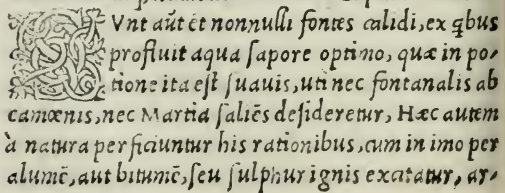 SVnt aūt et nonnulli fontes calidi, ex q̄bus
profluit aqua ſapore optimo, quæ in po⸗
tione ita eſt ſuauis, uti nec fontanalis ab
camœnis, nec Martia ſaliēs deſideretur, Hæc autem
à natura perficiuntur his rationibus, cum in imo per
alumē, aut bitumē, ſeu ſulphur ignis excitatur, ar⸗